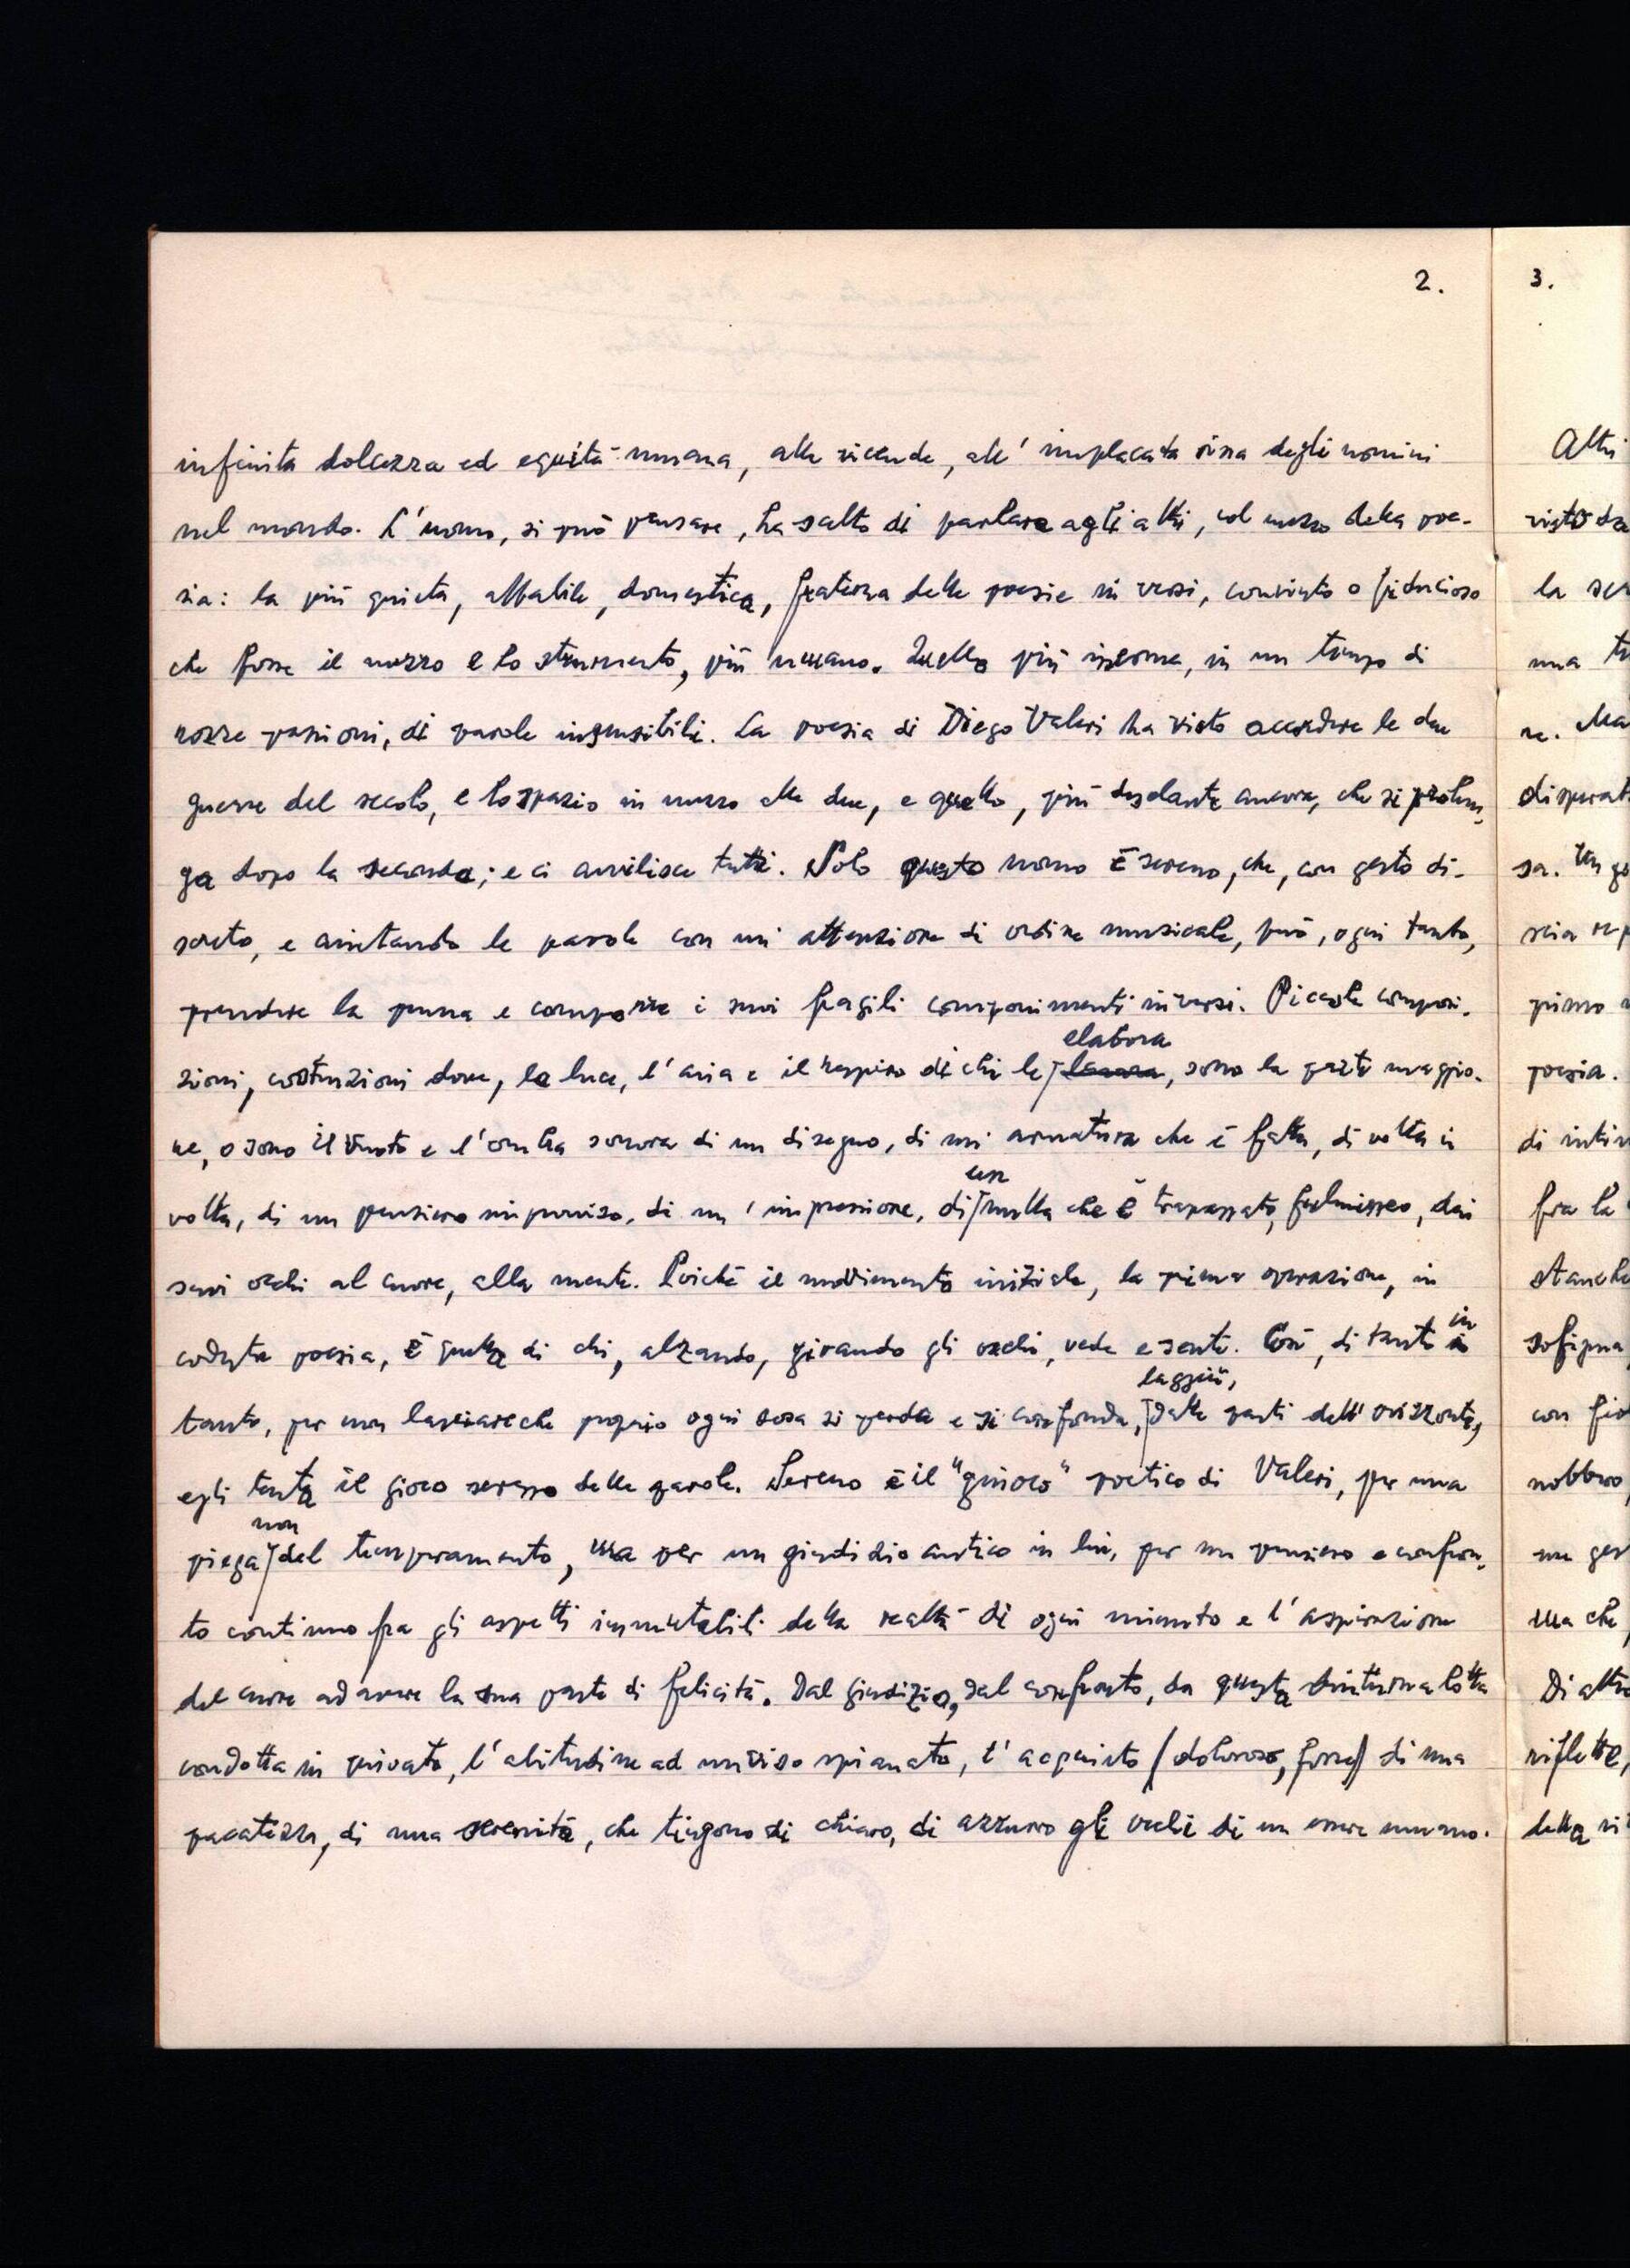 2.
infinita dolcezza ed equità umana, alle vicende, all'implacata rissa degli uomini
nel mondo. L'uomo, si può pensare, ha scelto di parlare agli altri, col mezzo della poe-
sia: la più quieta, affabile, domestica, fraterna delle poesie in versi, convinto o fiducioso
che fosse il mezzo e lo strumento, più umano. Quello più insomma, in un tempo di
rozze passioni, di parole insensibili. La poesia di Diego Valeri ha visto accadere le due
guerre del secolo, e lo spazio in mezzo alle due, e quello, più desolante ancora, che si prolun-
ga dopo la seconda; e ci avvilisce tutti. Solo questo uomo è sereno, che, con gesto di-
screto, e aiutando le parole con un'attenzione di ordine musicale, può, ogni tanto,
prendere la penna e comporre i suoi fragili componimenti in versi. Piccole composi-
elabora
zioni, costruzioni dove, la luce, l'aria e il respiro di chi le , sono la parte maggio-
re, o sono il vuoto e l'ombra sonora di un disegno, di un'armatura che è fatta, di volta in
un
volta, di un pensiero improvviso, di un'impressione, di nulla che è trapassato, fulmineo, dai
suoi occhi al cuore, alla mente. Poiché il movimento iniziale, la prima operazione, in
in
codesta poesia, è quella di chi, alzando, girando gli occhi, vede e sente. Così, di tanto
laggiù,
tanto, per non lasciare che proprio ogni cosa si perda e si confonda, dalle parti dell'orizzonte,
egli tenta il gioco sereno delle parole. Sereno è il "giuoco" poetico di Valeri, per una
non
piega del temperamento, ma per un giudizio antico in lui, per un pensiero e confron-
to continuo fra gli aspetti immutabili della realtà di ogni minuto e l'aspirazione
del cuore ad avere la sua parte di felicità. Dal giudizio, dal confronto, da questa diuturna lotta
condotta in privato, l'abitudine ad un viso spianato, l'acquisto (doloroso, forse) di una
pacatezza, di una serenità, che tingono di chiaro, di azzurro gli occhi di un essere umano.
3.
Altri
la
una
re. Ma
disperat
sa. Un
primo
poesia.
di intim
fra la
con
nobbero,
un ges
ma che,
Di altre
riflette,
della